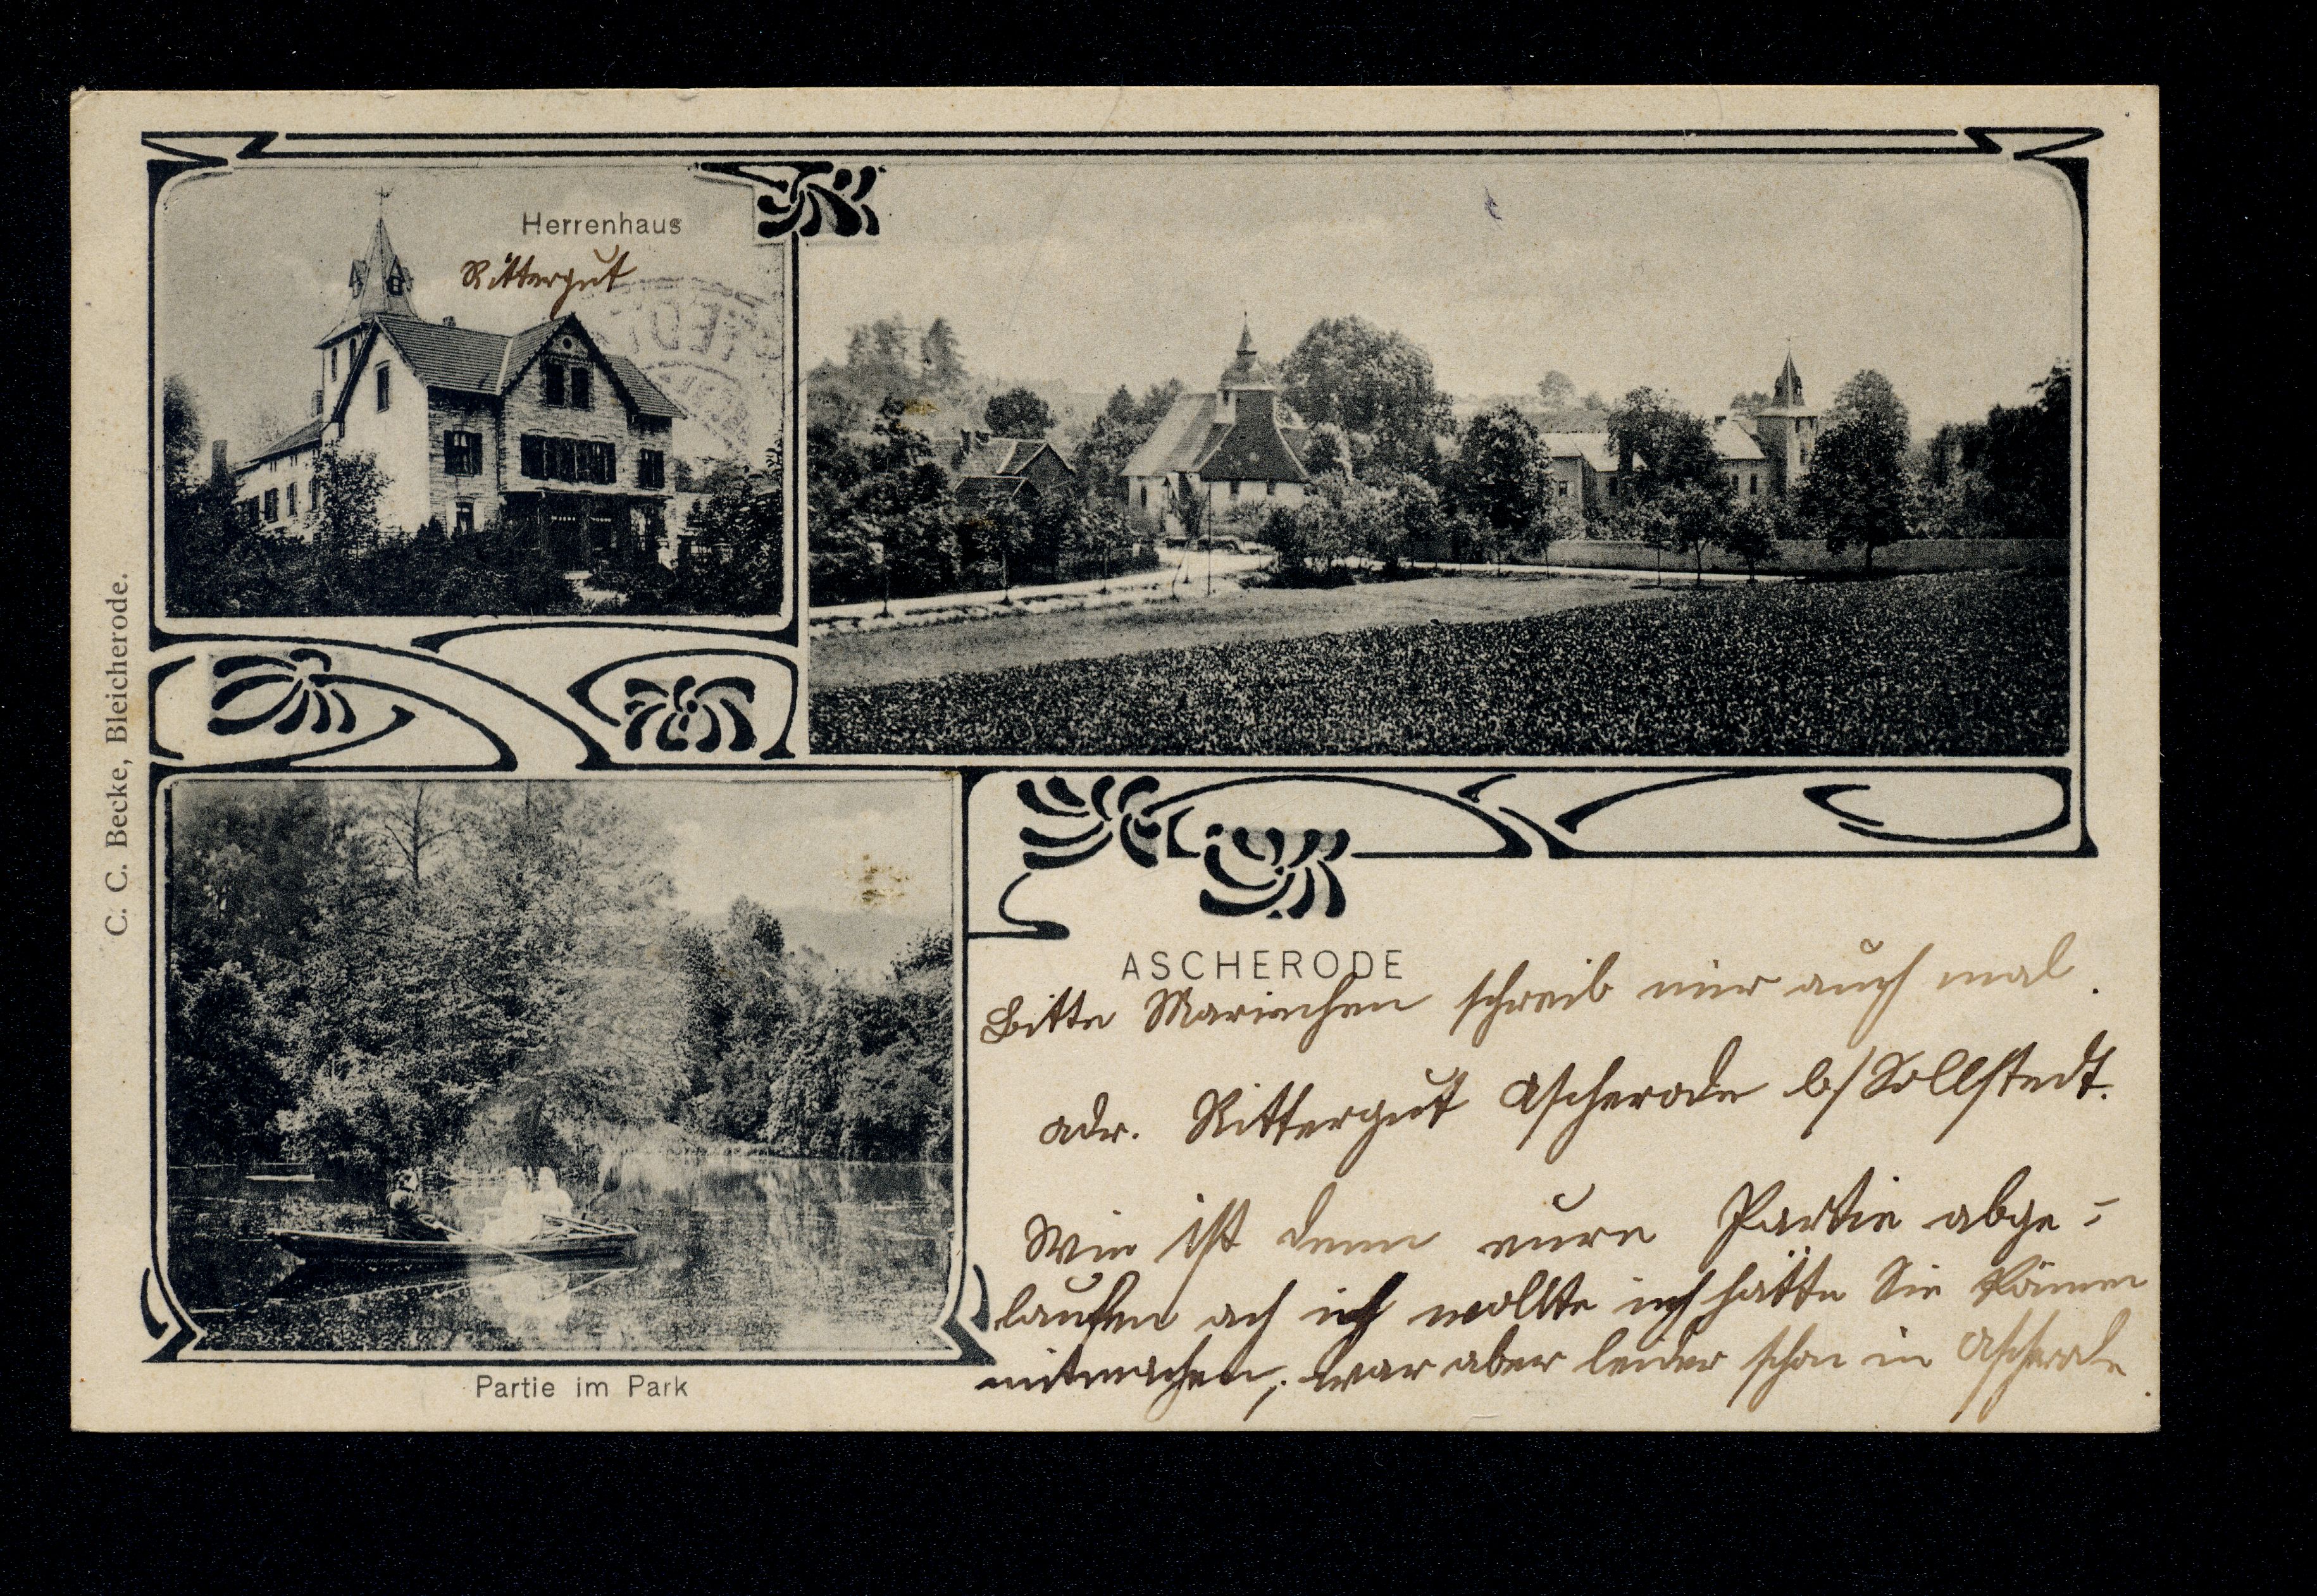 Herrenhaus
Rittergut
C. C. Becke, Bleicherode.
ASCHERODE
Bitte Mariechen schreib mir auch mal.
adr. Rittergut Ascherode b/Sollstedt.
Wie ist denn eure Partie abge=
laufen ach ich wollte ich hätte Sie können
mitmachen, war aber leider schon in Ascherode
Partie im Park